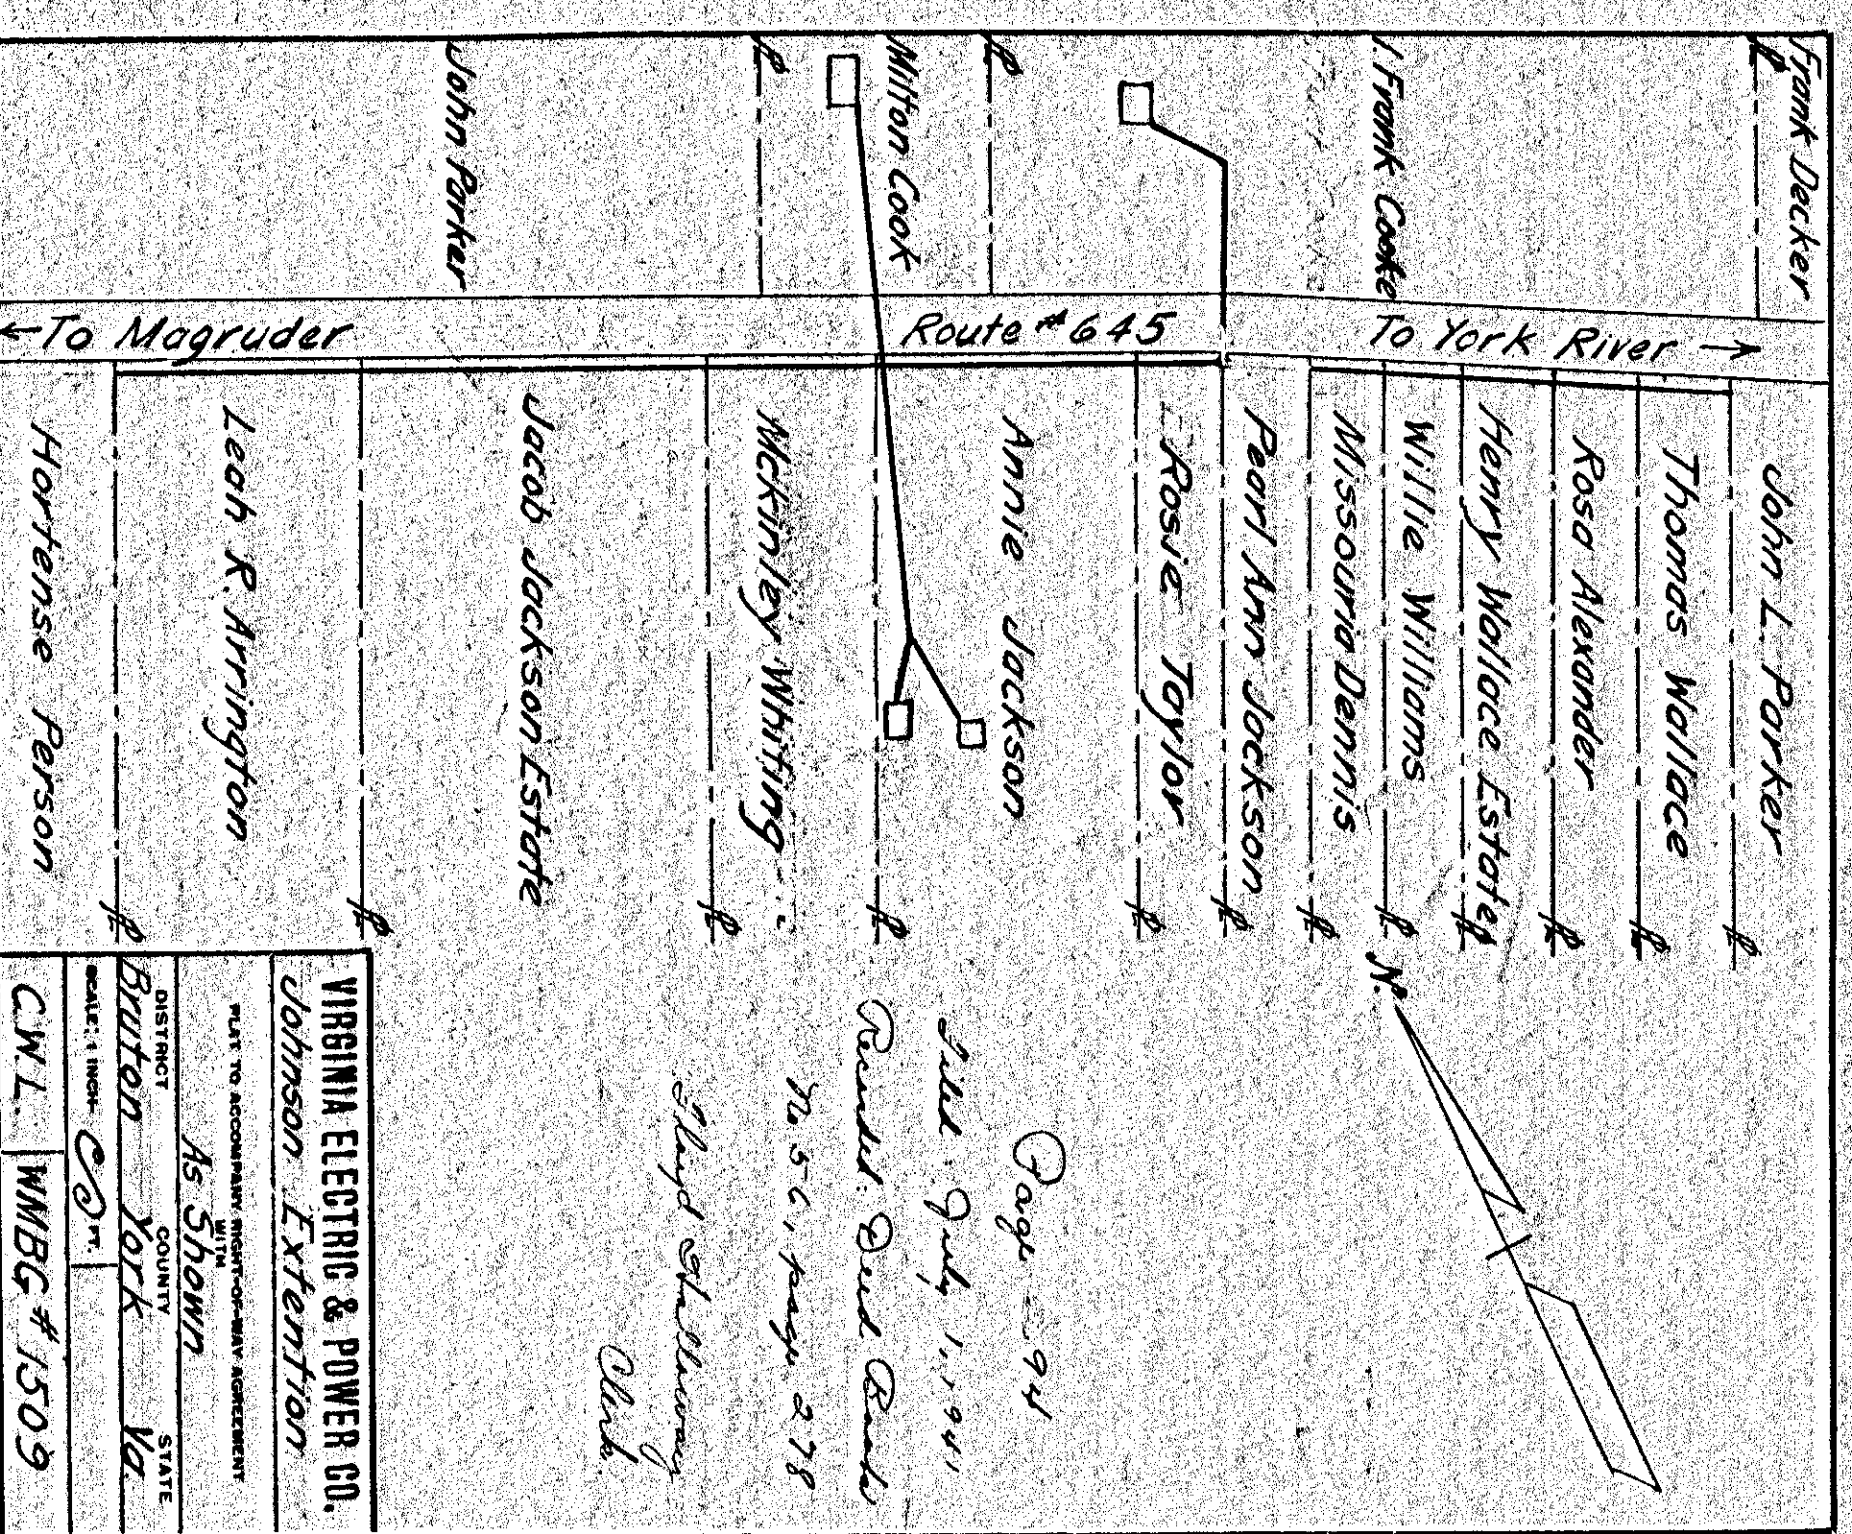 Frank Decker
J. Frank Cooke
Milton Cook
John Parker
← To Magruder
Route # 645
To York River →
John L. Parker
Thomas Wallace
Rosa Alexander
Henry Wallace Estate
Willie Williams
Missouria Dennis
Pearl Ann Jackson
Rosie Taylor
Annie Jackson
Mckinley Whiting
Jacob Jackson Estate
Leah R. Arrington
Hortense Person
N.
Page = 94
Filed: July 1, 1941,
Recorded: Deed Book
No 56, page 278
Floyd Holloway
Clerk.
VIRGINIA ELECTRIC & POWER CO.
Johnson Extention
PLAT TO ACCOMPANY RIGHT-OF-WAY AGREEMENT
WITH
As Shown
DISTRICT COUNTY STATE
Bruton York Va.
SCALE: 1 INCH FT.
C.W.L. WMBG # 1509